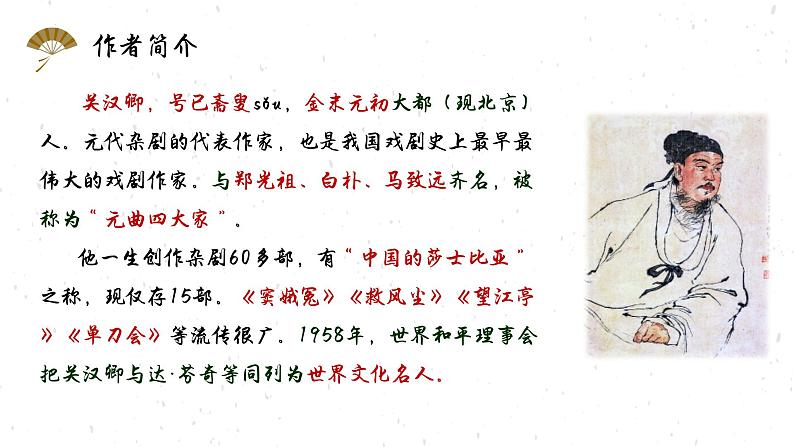 作者简介
关汉卿，号已斋叟sǒu，金末元初大都（现北京）
人。元代杂剧的代表作家，也是我国戏剧史上最早最
伟大的戏剧作家。与郑光祖、白朴、马致远齐名，被
称为“元曲四大家”。
他一生创作杂剧60多部，有“中国的莎士比亚”
之称，现仅存15部。《窦娥冤》《救风尘》《望江亭
》《单刀会》等流传很广。1958年，世界和平理事会
把关汉卿与达·芬奇等同列为世界文化名人。